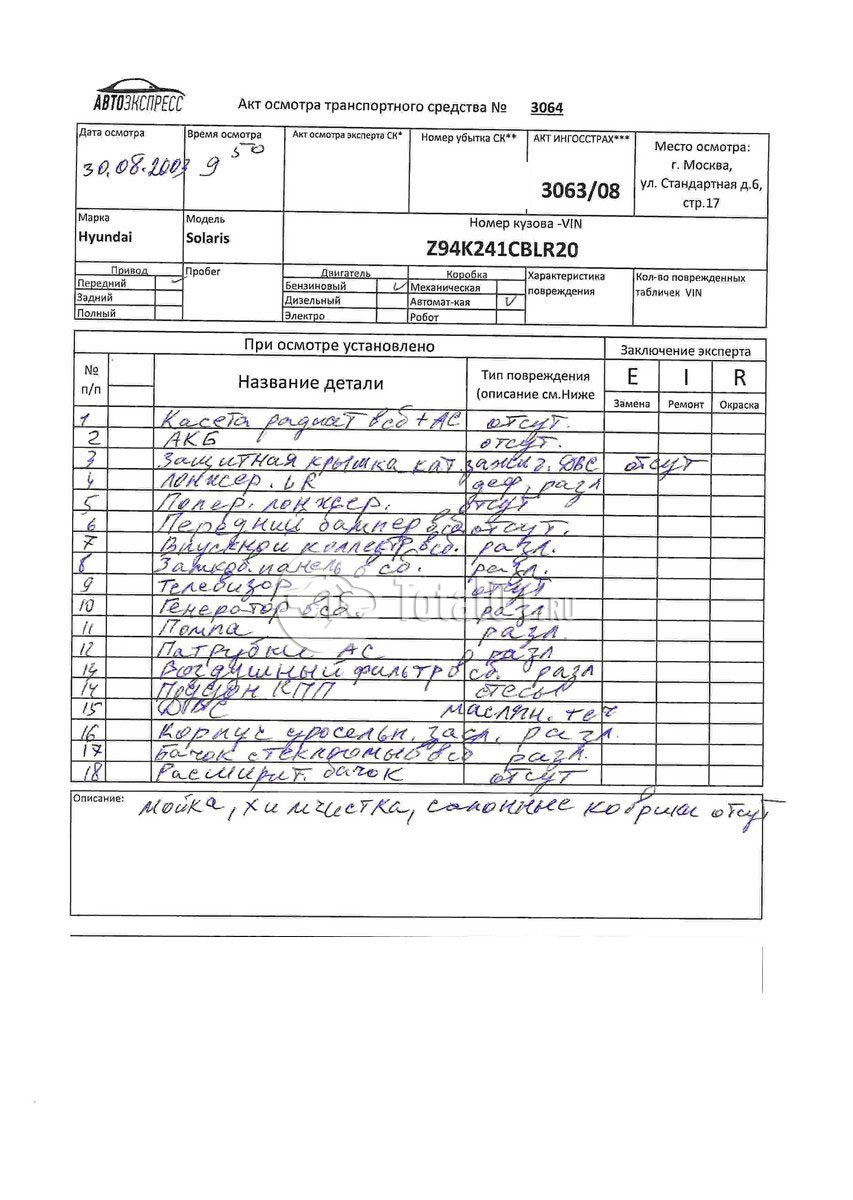 АВТОЭКСПРЕСС
Акт осмотра транспортного средства № 3064
Дата осмотра Время осмотра Акт осмотра эксперта СК* Номер убытка СК** АКТ ИНГОССТРАХ*** Место осмотра:
30.08.2003 9 50 3063/08 г. Москва,
ул. Стандартная д.6,
стр.17
Марка Модель Номер кузова -VIN
Hyundai Solaris Z94K241CBLR20
Привод Пробег Двигатель Коробка Характеристика повреждения Кол-во поврежденных табличек VIN
Передний Бензиновый Механическая
Задний Дизельный Автомат-кая
Полный Электро Робот
При осмотре установлено Заключение эксперта
№ п/п Название детали Тип повреждения (описание см.Ниже E I R
Замена Ремонт Окраска
1 Касета радиат в сб + АС отсут.
2 АКБ отсут.
3 Защитная крышка кат. зажиг. ДВС отсут
4 Лонжер. LR деф, разл
5 Попер. лонжер. отсут
6 Передний бампер в сб отсут.
7 Впускной коллект в сб. разл.
8 панель в сб. разл.
9 Телевизор отсут
10 Генератор в сб. разл
11 Помпа разл.
12 Патрубки АС разл
13 Воздушный фильтр в сб. разл
14 Поддон КПП стесы
15 ДВС маслян. теч
16 Корпус дросельн. засл. разл.
17 Бачок стеклоомыв в сб разл.
18 Расширит. бачок отсут
TotalO1.RU
Описание: мойка, химчистка, салонные коврики отсут